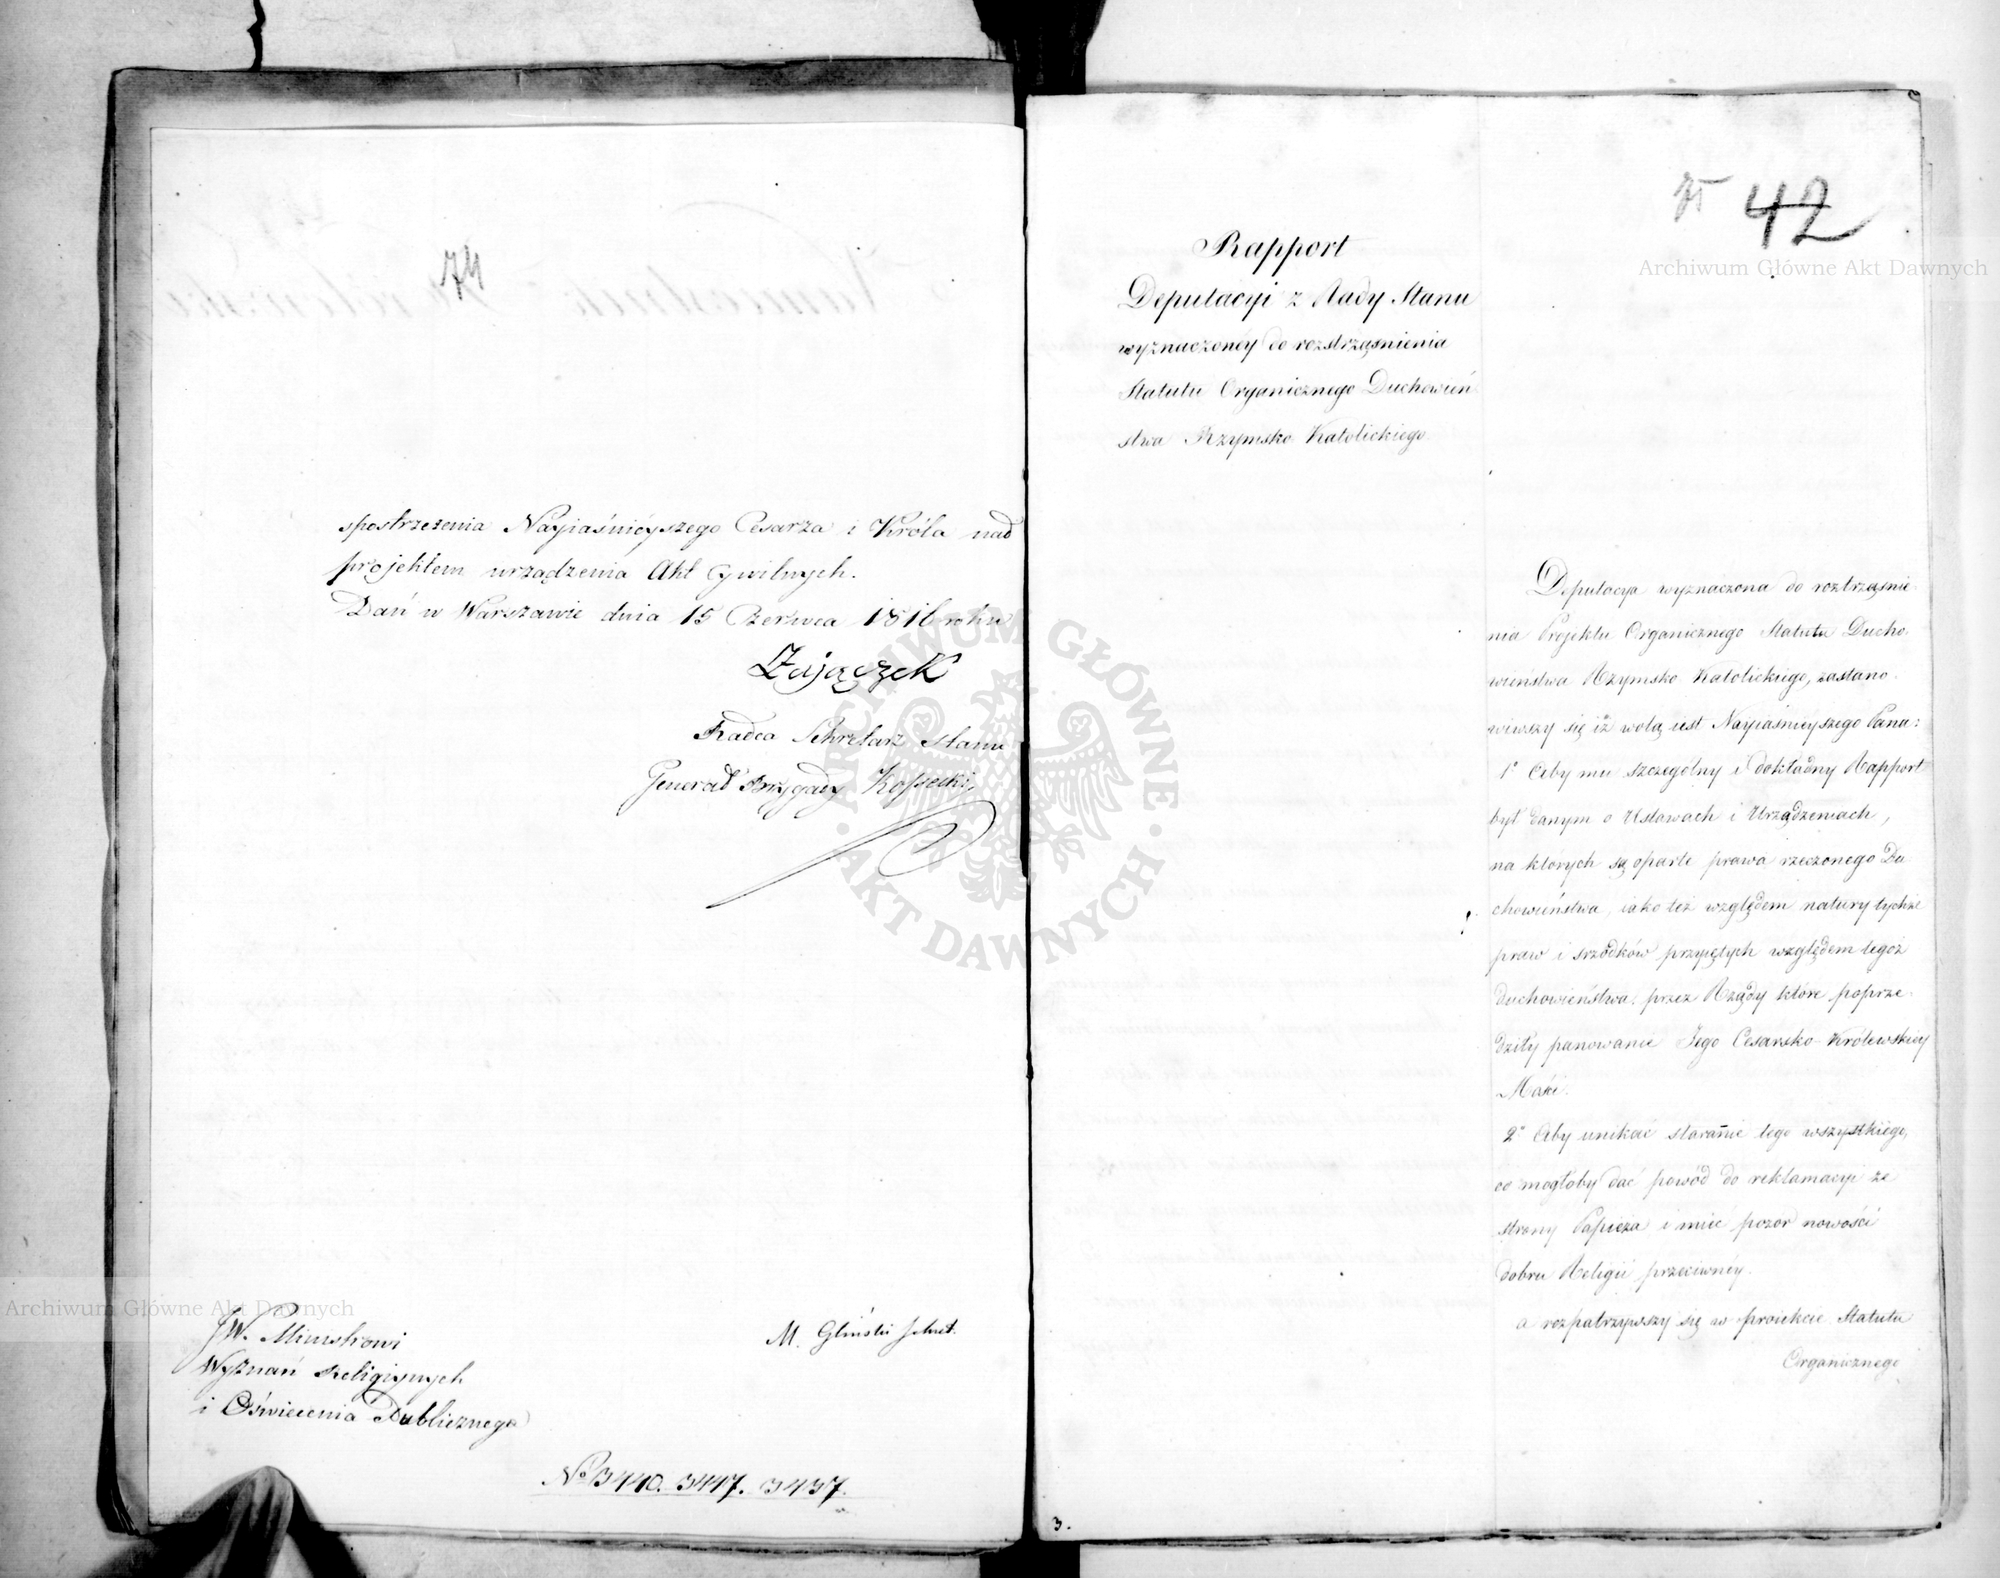 74
spostrzeżenia Nayiaśnieyszego Cesarza i Króla nad
projektem urządzenia Akt Cywilnych.
Dań w Warszawie dnia 15 Czerwca 1816 roku
Zajączek
Radca Sekretarz Stanu
Generał Brygady Kossecki
JW. Ministrowi
Wyznań Religiynych
i Oświecenia Publicznego
M. Gliński Sekret.
No 3440. 3447. 3437.
75 42
Rapport
Deputacyi z Rady Stanu
wyznaczonéy do rozstrząśnienia
Statutu Organicznego Duchowień
stwa Rzymsko Katolickiego
Deputacya wyznaczona do roztrząśnie
nia Projektu Organicznego Statutu Ducho
wieństwa Rzymsko Katolickiego, zastano
wiwszy się iż wolą iest Nayiaśnieyszego Pana:
1° Aby mu szczegolny i dokładny Rapport
był danym o Ustawach i Urządzeniach,
na których są oparte prawa rzeczonego Du
chowieństwa, iako też względem natury tychże
praw i srzodków przyiętych względem tegoż
Duchowieństwa, przez Rządy które poprze
dziły panowanie Jego Cesarsko-Królewskiey
Mości.
2° Aby unikać starannie tego wszystkiego,
co mogłoby dać powód do reklamacyi ze
strony Papieża i mieć pozór nowości
dobru Religii przeciwnéy.
a rozpatrzywszy się w proiekcie Statutu
Organicznego
3.
Archiwum Główne Akt Dawnych
Archiwum Główne Akt Dawnych
ARCHIWUM GŁÓWNE · AKT DAWNYCH ·